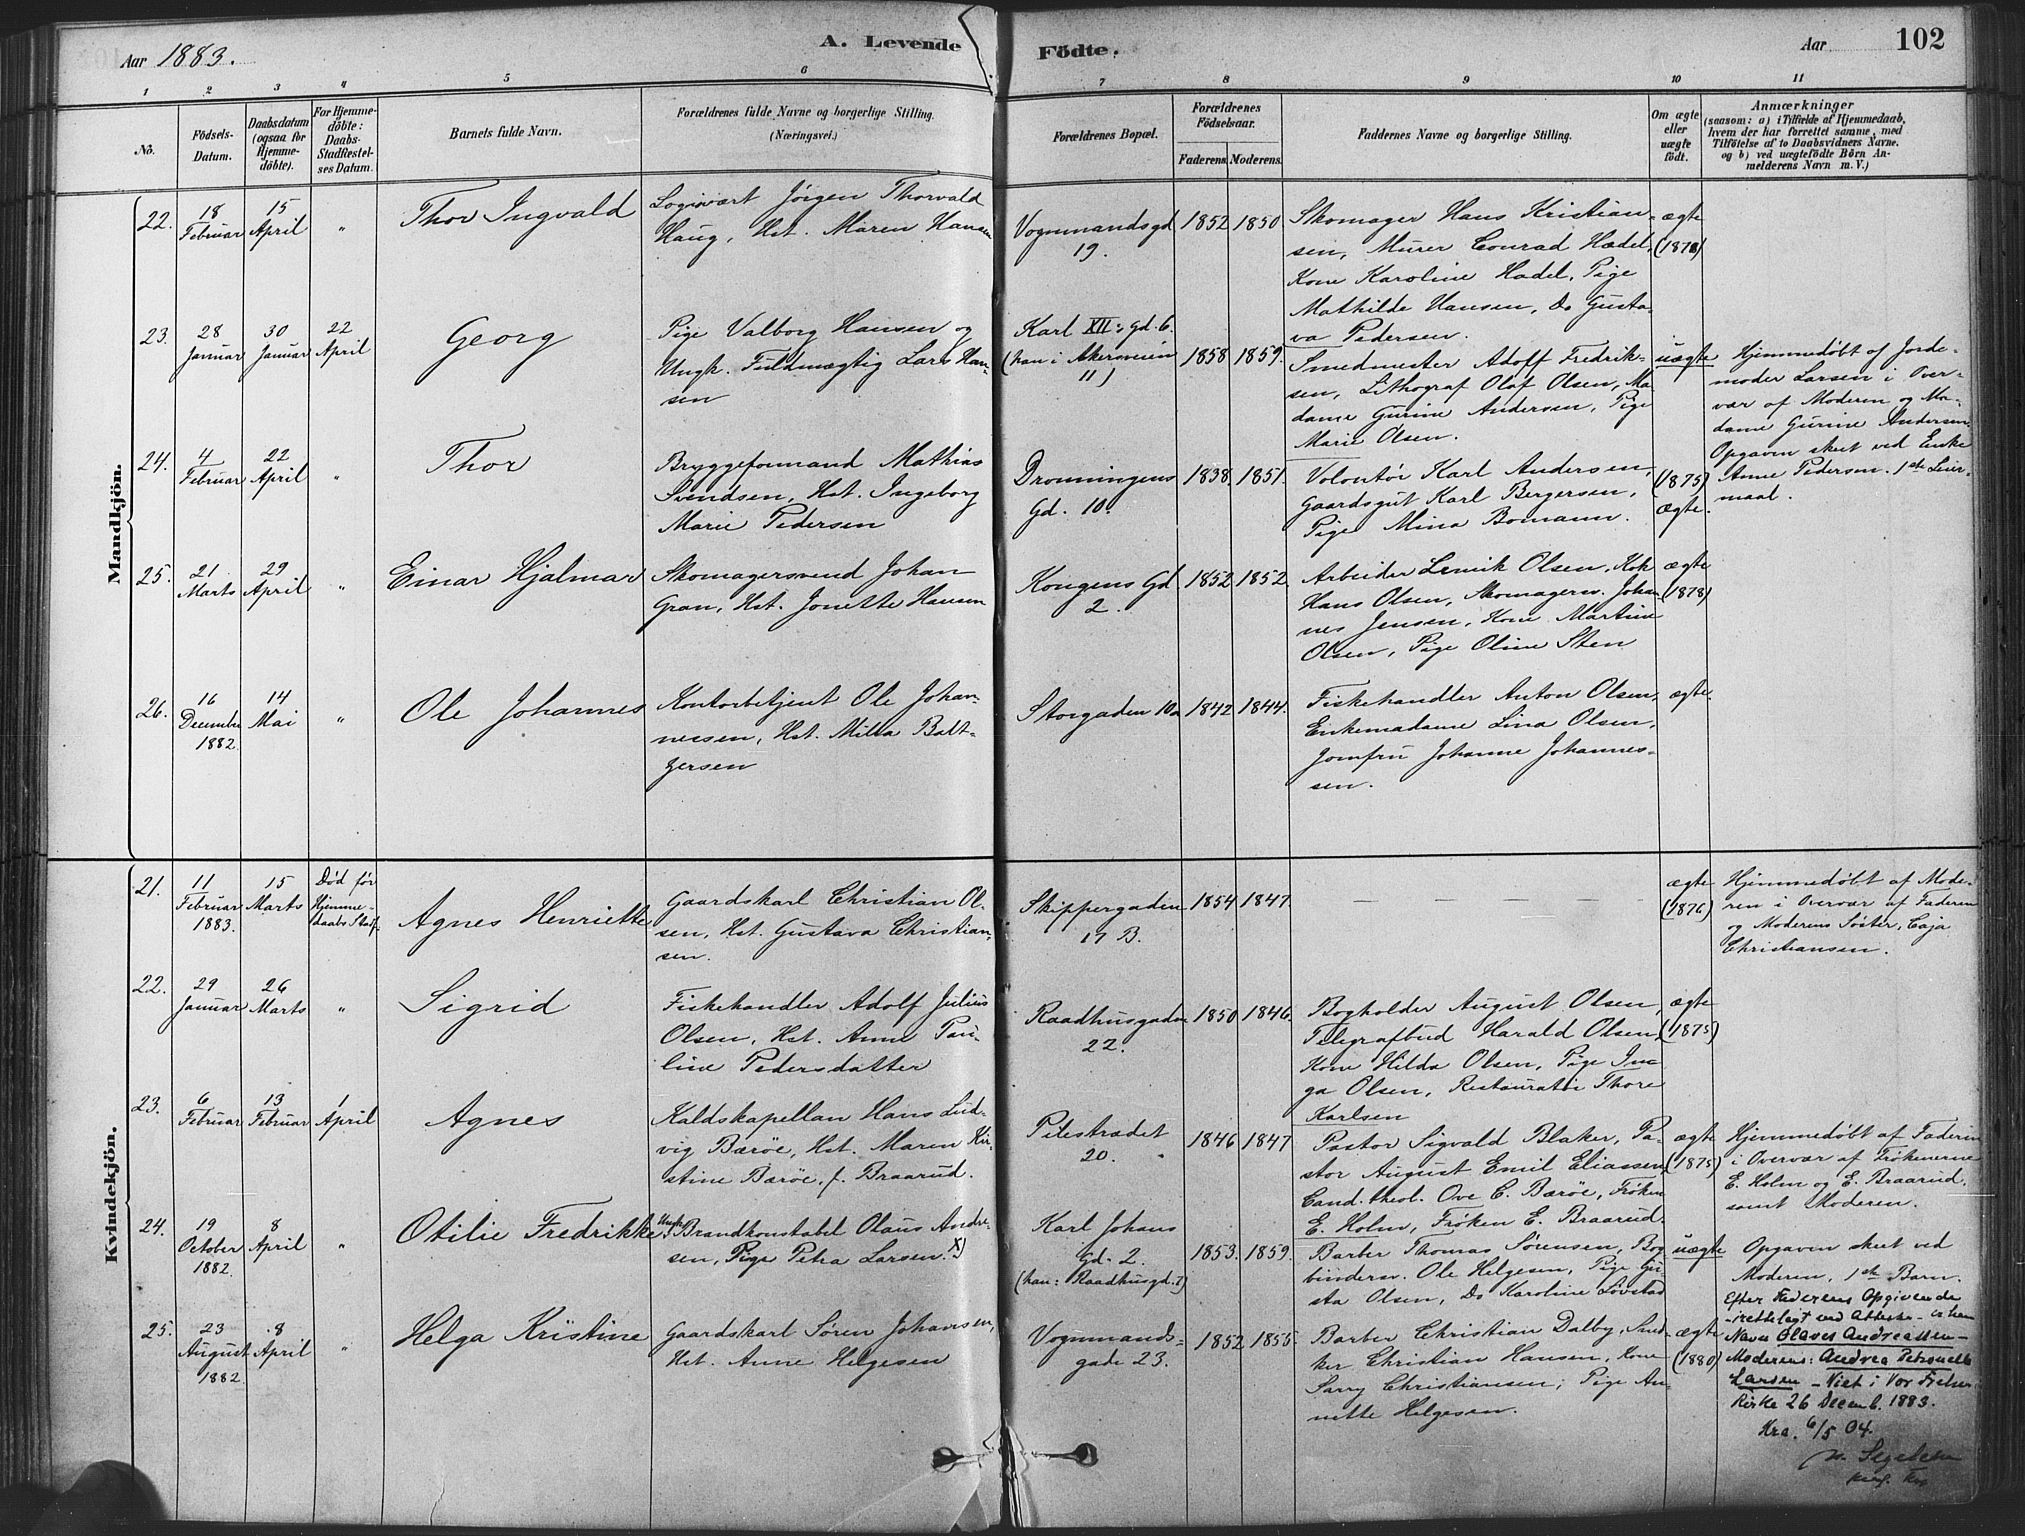 Aar 1883.
A. Levende Födte.
Aar
102
1 2 3 4 5 6 7 8 9 10 11
No.
Födsels-
Datum.
Daabsdatum
(ogsaa for
Hjemme-
döbte).
For Hjemme-
döbte:
Daabs-
Stadfæstel-
ses Datum.
Barnets fulde Navn.
Forældrenes fulde Navne og borgerlige Stilling.
(Næringsvei.)
Forældrenes Bopæl.
Forældrenes
Födselsaar.
Faderens. Moderens.
Faddernes Navne og borgerlige Stilling.
Om ægte
eller
uægte
födt.
Anmærkninger
(saasom: a) i Tilfælde af Hjemmedaab,
hvem der har forrettet samme, med
Tilföielse af to Daabsvidners Navne.
og b) ved uægtefödte Börn An-
melderens Navn m. V.)
Mandkjön.
22.
18
Februar
15
April
"
Thor Ingvald
Logivært Jörgen Thorvald
Haug, Hst. Maren Hansen
Vognmandsgd
19.
1852
1850
Skomager Hans Kristian-
sen, Murer Conrad Hædel,
Kone Karoline Hadel, Pige
Mathilde Hansen, Do Gusta-
va Pedersen.
ægte
23.
28
Januar
30
Januar
22
April
Georg
Pige Valborg Hansen og
Ungk. Fuldmægtig Lars Han-
sen
Karl XII: Gd. 6.
(han i Akersveien
11)
1858
1859.
Smedmester Adolf Fredrik-
sen, Lithograf Olaf Olsen, Ma
dame Gurine Andersen, Pige
Marie Olsen.
uægte
Hjemmedøbt af Jorde-
moder Larsen i Over-
vær af Moderen og Ma-
dame Gurine Andersen.
Opgaven skeet ved Enke
Anne Pedersen. 1ste Leier-
maal.
24.
4
Februar
22
April
"
Thor
Bryggeformand Mathias
Svendsen, Hst. Ingeborg
Marie Pedersen
Dronningens
Gd. 10.
1838.
1851.
Volontör Karl Andersen,
Gaardsgut Karl Bergersen,
Pige Mina Bomann.
(1875)
ægte.
25.
21
Marts
29
April
"
Einar Hjalmar
Skomagersvend Johan
Gran, Hst. Jonette Hansen
Kongens Gd
2.
1852
1852
Arbeider Lenik Olsen, Kok
Hans Olsen, Skomagersv. Johan
nes Jensen, Kone Martine
Olsen, Pige Oline Sten
ægte
(1878)
26.
16
December
1882.
14
Mai
"
Ole Johannes
Kontorbetjent Ole Johan-
nessen, Hst. Milla Balt-
zersen
Storgaden 10a
1842
1844.
Fiskehandler Anton Olsen,
Enkemadame Lina Olsen,
Jomfru Johanne Johannes-
sen.
ægte.
Kvindekjön.
21.
11
Februar
1883.
15
Marts
Död för
Hjemme-
daabs Stadf.
Agnes Henriette
Gaardskarl Christian Ol-
sen, Hst. Gustava Christian-
sen.
Skippergaden
17 B.
1854
1847.
— — — — —
ægte
(1876)
Hjemmedøbt af Mode-
ren i Overvær af Faderen
og Moderens Søster, Caja
Christiansen.
22.
29
Januar
26
Marts
"
Sigrid
Fiskehandler Adolf Julius
Olsen, Hst. Anne Pau-
line Pedersdatter
Raadhusgaden
22.
1850
1846.
Bogholder August Olsen,
Telegrafbud Harald Olsen,
Kone Hilda Olsen, Pige In-
ga Olsen, Restauratör Thore
Karlsen
ægte
(1875)
23.
6
Februar
13
Februar
1
April
Agnes
Kaldskapellan Hans Lud-
vig Bærøe, Hst. Maren Kir-
stine Bærøe, f. Braarud.
Pilestrædet
20.
1846
1847
Pastor Sigvald Blaker, Pa-
stor August Emil Eliassen,
Cand. theol. Ove C. Bærøe, Frøken
E. Holm, Frøken E. Braarud.
ægte
(1875)
Hjemmedøbt af Faderen
i Overvær af Frøkenerne
E. Holm og E. Braarud,
samt Moderen.
24.
19
October
1882.
8
April
"
Otilie Fredrikke
Ungk. Brandkonstabel Olaus Andre-
sen, Pige Petra Larsen. X)
Karl Johans
Gd. 2.
(han: Raadhusgd. 7)
1853.
1859.
Barber Thomas Sørensen, Bog
bindersv. Ole Helgesen, Pige Gu
sta Olsen, Do Karoline Løvstad
uægte
Opgaven skeet ved
Moderen, 1ste Barn.
Efter Faderens Opgivende
Navn Olaves Andreassen —
Moderens: Andrea Petronelle
Larsen — Viet i Vor Frelsers
Kirke 26 Decemb. 1883.
Kra. 6/5 04.
25.
23
August
1882.
8
April
"
Helga Kristine
Gaardskarl Søren Johansen,
Hst. Anne Helgesen
Vognmands-
gade 23.
1852
1855.
Barber Christian Dalby, Snd-
ker Christian Hansen, Kone
Sarry Christiansen; Pige An-
nette Helgesen.
ægte
(1880)